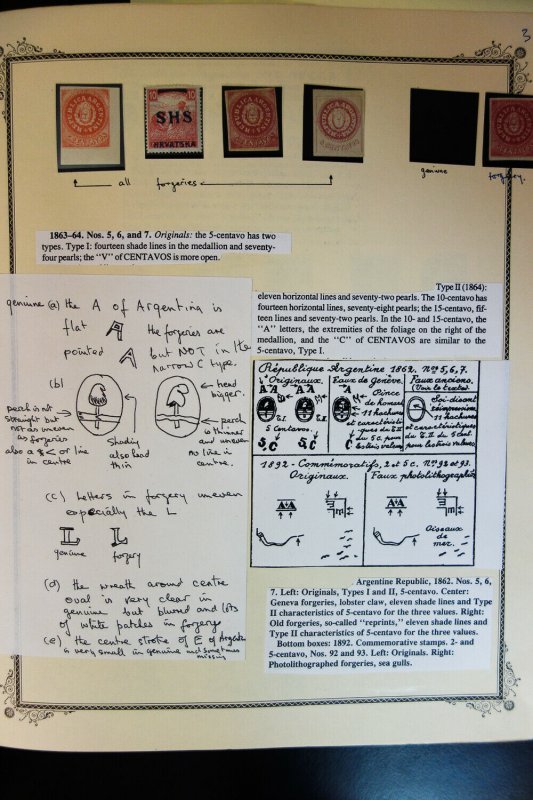 3
10
10
SHS
HRVATSKA
all forgeries
genuine
forgery.
1863–64. Nos. 5, 6, and 7. Originals: the 5-centavo has two
types. Type I: fourteen shade lines in the medallion and seventy-
four pearls; the "V" of CENTAVOS is more open.
Type II (1864):
eleven horizontal lines and seventy-two pearls. The 10-centavo has
fourteen horizontal lines, seventy-eight pearls; the 15-centavo, fif-
teen lines and seventy-two pearls. In the 10- and 15-centavo, the
"A" letters, the extremities of the foliage on the right of the
medallion, and the "C" of CENTAVOS are similar to the
5-centavo, Type I.
genuine (a) the A of Argentina is
flat A the forgeries are
pointed A but NOT in the
narrow C type.
(b)
head
bigger.
perch is not
straight but
not as uneven
as forgeries
also a 8< or line
in centre
Shading
also head
thin
perch
is thinner
and uneven
no line in
centre.
(c) Letters in forgery uneven
especially the L
L L
genuine forgery
(d) the wreath around centre
oval is very clear in
genuine but blurred and lots
of white patches in forgery
(e) the centre stroke of E of Argentina
is very small in genuine and sometimes
missing
République Argentine 1862. Nos 5, 6, 7.
Originaux. Faux de Genève. Faux anciens.
(Voir le texte)
Pince
de homard
11 hachures
et caractéristi-
ques du T.II
du 5c. pour
les trois valeurs
Soi-disant
réimpressions
11 hachures
et caractéristiques
du T.II du 5 cent.
pour les trois valeurs
T.I T.II
5 Centavos.
5C 5C
1892 - Commémoratifs, 2 et 5 c. Nos 92 et 93.
Originaux. Faux photolithographiés
Oiseaux
de
mer.
Argentine Republic, 1862. Nos. 5, 6,
7. Left: Originals, Types I and II, 5-centavo. Center:
Geneva forgeries, lobster claw, eleven shade lines and Type
II characteristics of 5-centavo for the three values. Right:
Old forgeries, so-called "reprints," eleven shade lines and
Type II characteristics of 5-centavo for the three values.
Bottom boxes: 1892. Commemorative stamps. 2- and
5-centavo, Nos. 92 and 93. Left: Originals. Right:
Photolithographed forgeries, sea gulls.